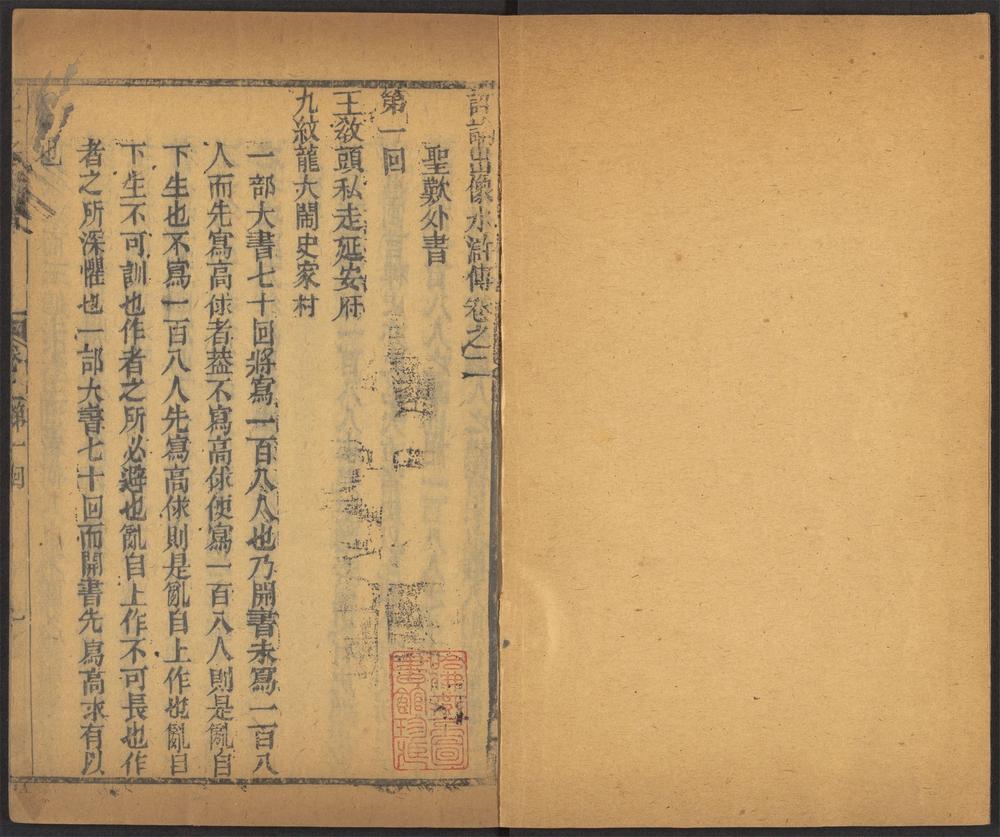 評論出像水滸傳卷之二
聖歎外書
第一回
王教頭私走延安府
九紋龍大鬧史家村
一部大書七十回將寫一百八人也乃開書未寫一百八
人而先寫高俅者葢不寫高俅便寫一百八人則是亂自
下生也不寫一百八人先寫高俅則是亂自上作也亂自
下生不可訓也作者之所必避也亂自上作不可長也作
者之所深懼也一部大書七十回而開書先寫高俅有以
也
卷之二 第一回
哈佛燕京圖書館珍藏